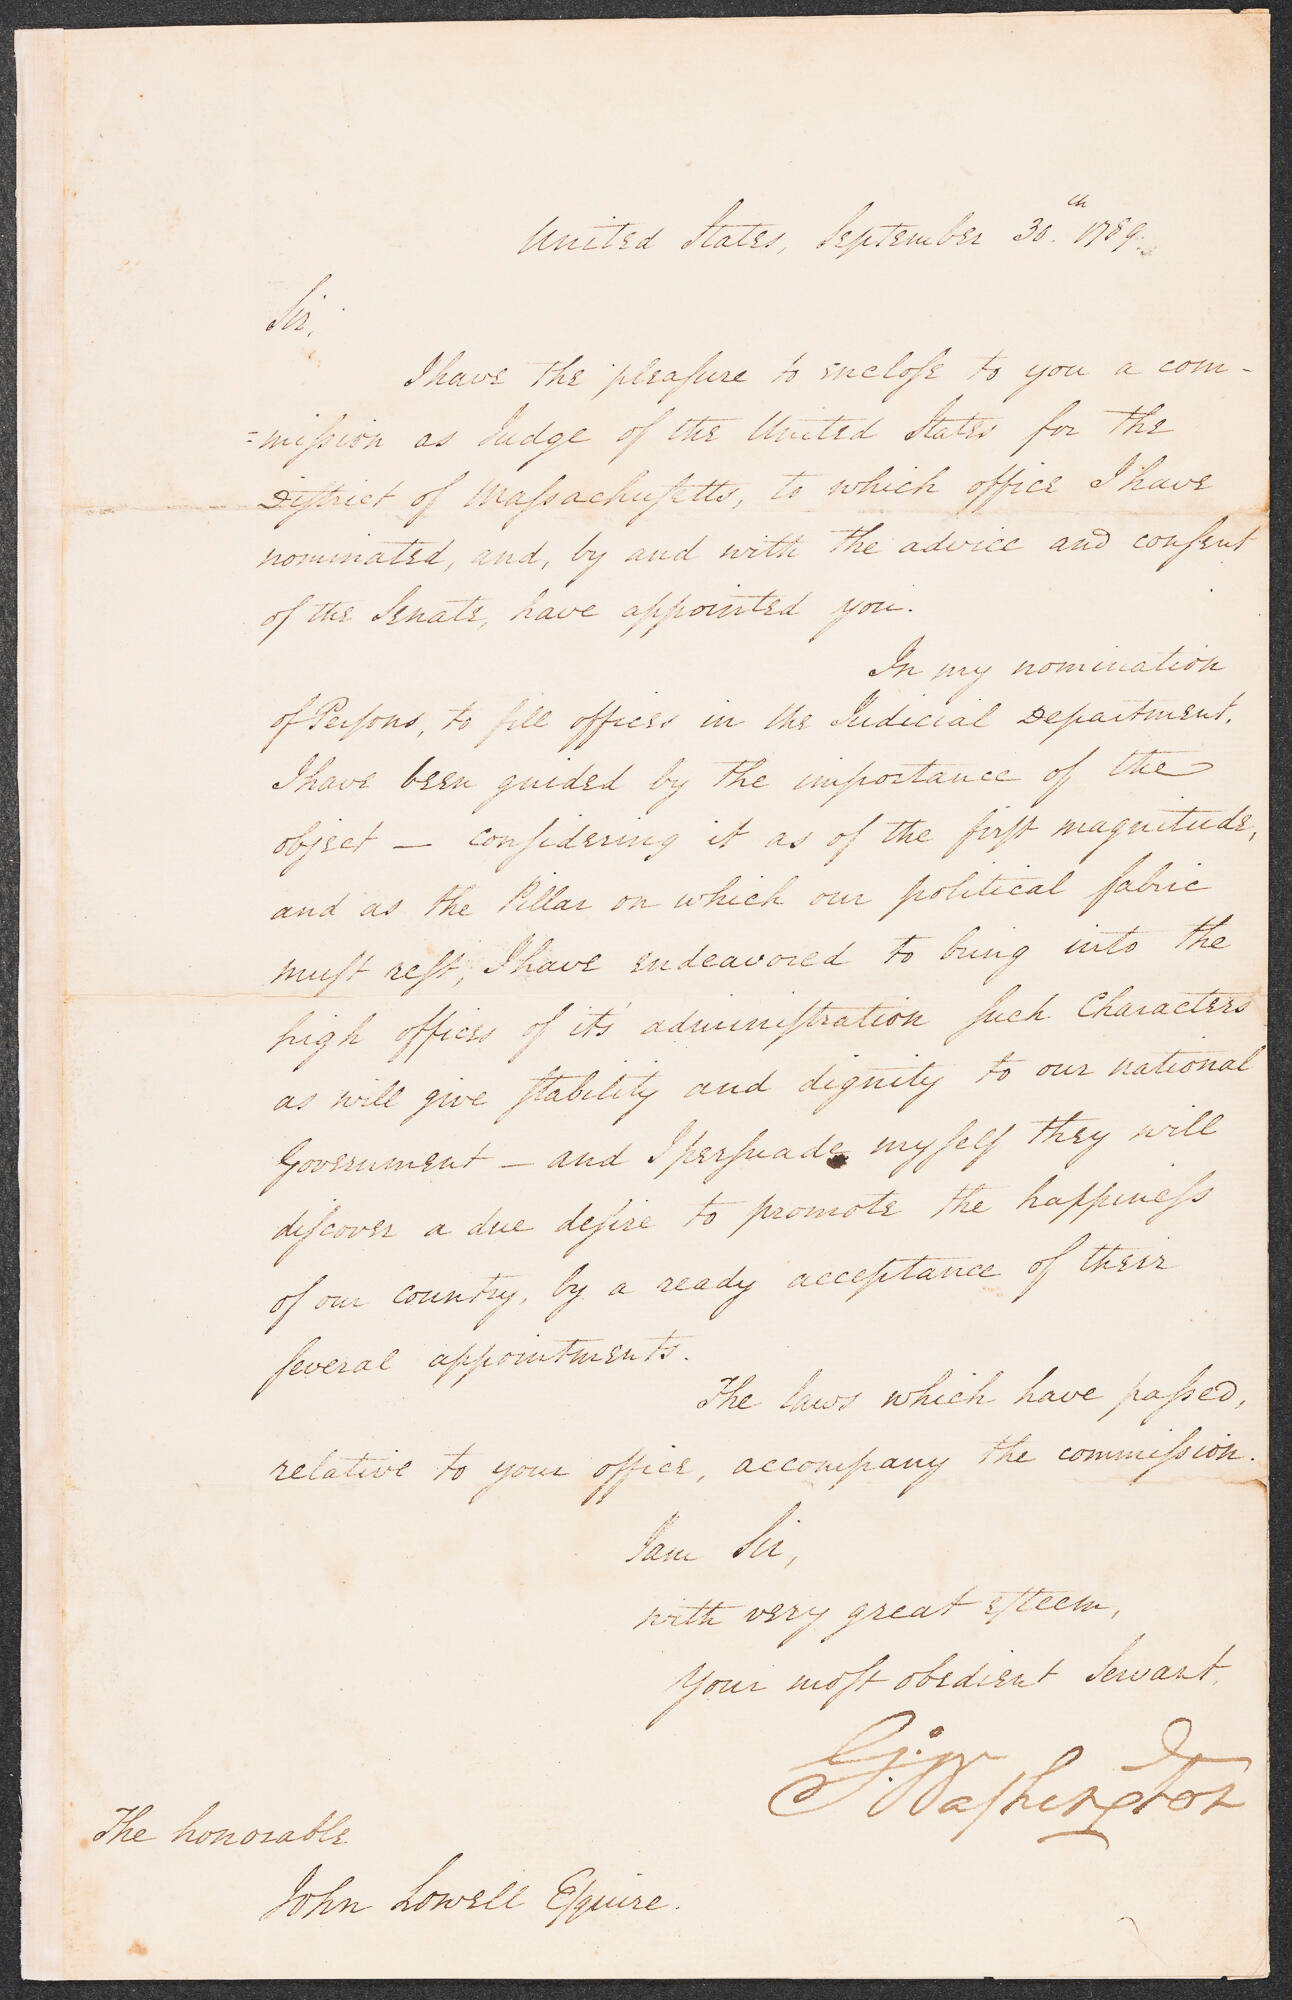 United States, September 30.th 1789.
Sir,
I have the pleaſure to encloſe to you a com-
=miſsion as Judge of the United States for the
Diſtrict of Maſsachuſetts, to which office I have
nominated, and, by and with the advice and conſent
of the Senate, have appointed you.
In my nomination
of Perſons, to fill offices in the Judicial Department,
I have been guided by the importance of the
object — conſidering it as of the firſt magnitude,
and as the Pillar on which our political fabric
muſt reſt, I have endeavored to bring into the
high offices of it's adminiſtration ſuch Characters
as will give ſtability and dignity to our national
Government — and I perſuade myſelf they will
diſcover a due deſire to promote the happineſs
of our country, by a ready acceptance of their
ſeveral appointments.
The laws which have paſsed,
relative to your office, accompany the commiſsion.
I am Sir,
with very great eſteem,
Your moſt obedient Servant,
G:Waſhington
The honorable
John Lowell Eſquire.